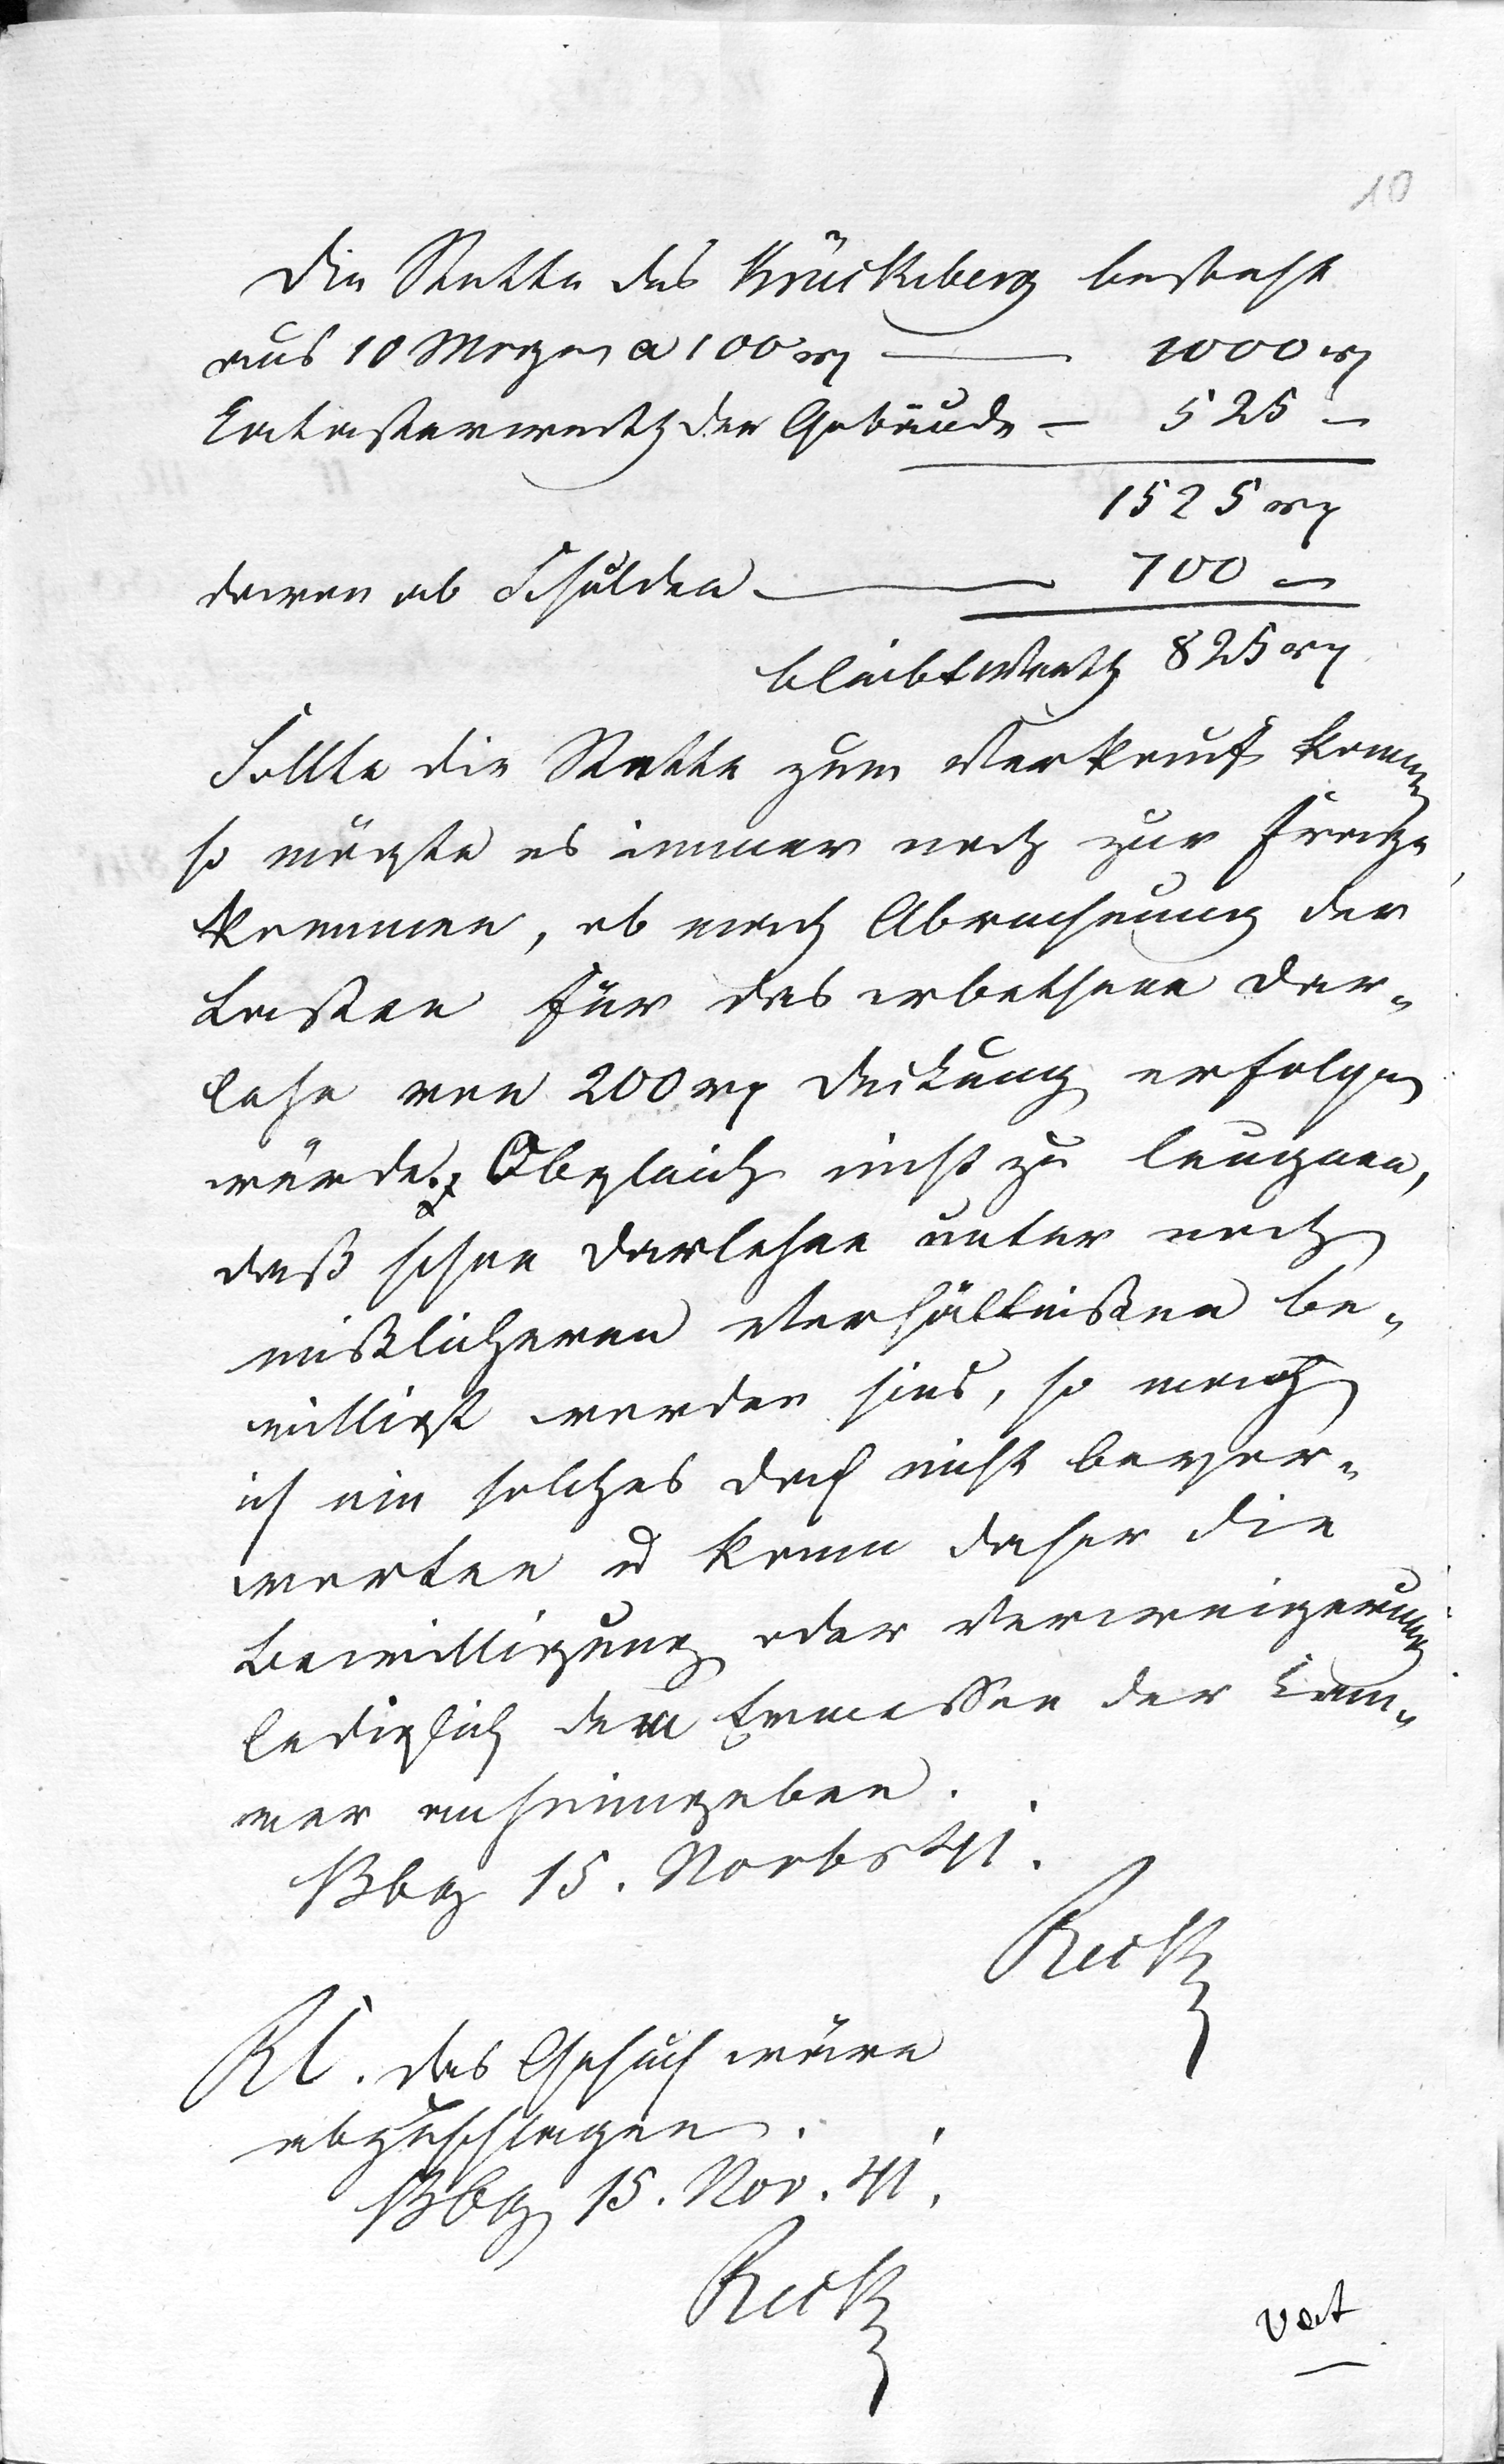 10
Die Stätte des Krückeberg besteht
aus 10 Morgen a 100 rℓ — 1000 rℓ
Catasterwerth der Gebäude — 525 –
1525 rℓ
davon ab Schulden — 700 –
bleibt Werth 825 rℓ
Sollte die Stätte zum Verkauf kommen
so mögte es immer noch zur Frage
kommen, ob nach Abrechnung der
Lasten für das erbethene Dar-
lehn von 200 rℓ Deckung erfolgen
würde. Obgleich nicht zu leugnen,
daß schon Darlehne unter noch
mißlicheren Verhältnißen be-
willigt worden sind, so mag
ich ein solches doch nicht bevor-
worten u kann daher die
Bewilligung oder Verweigerung
lediglich dem Ermessen der Kam-
mer anheimgeben.
Bbg 15. Novbr 41.
Rick
Rℓ. das Gesuch wäre
abzuschlagen.
Bbg 15. Nov. 41.
Rick
vert